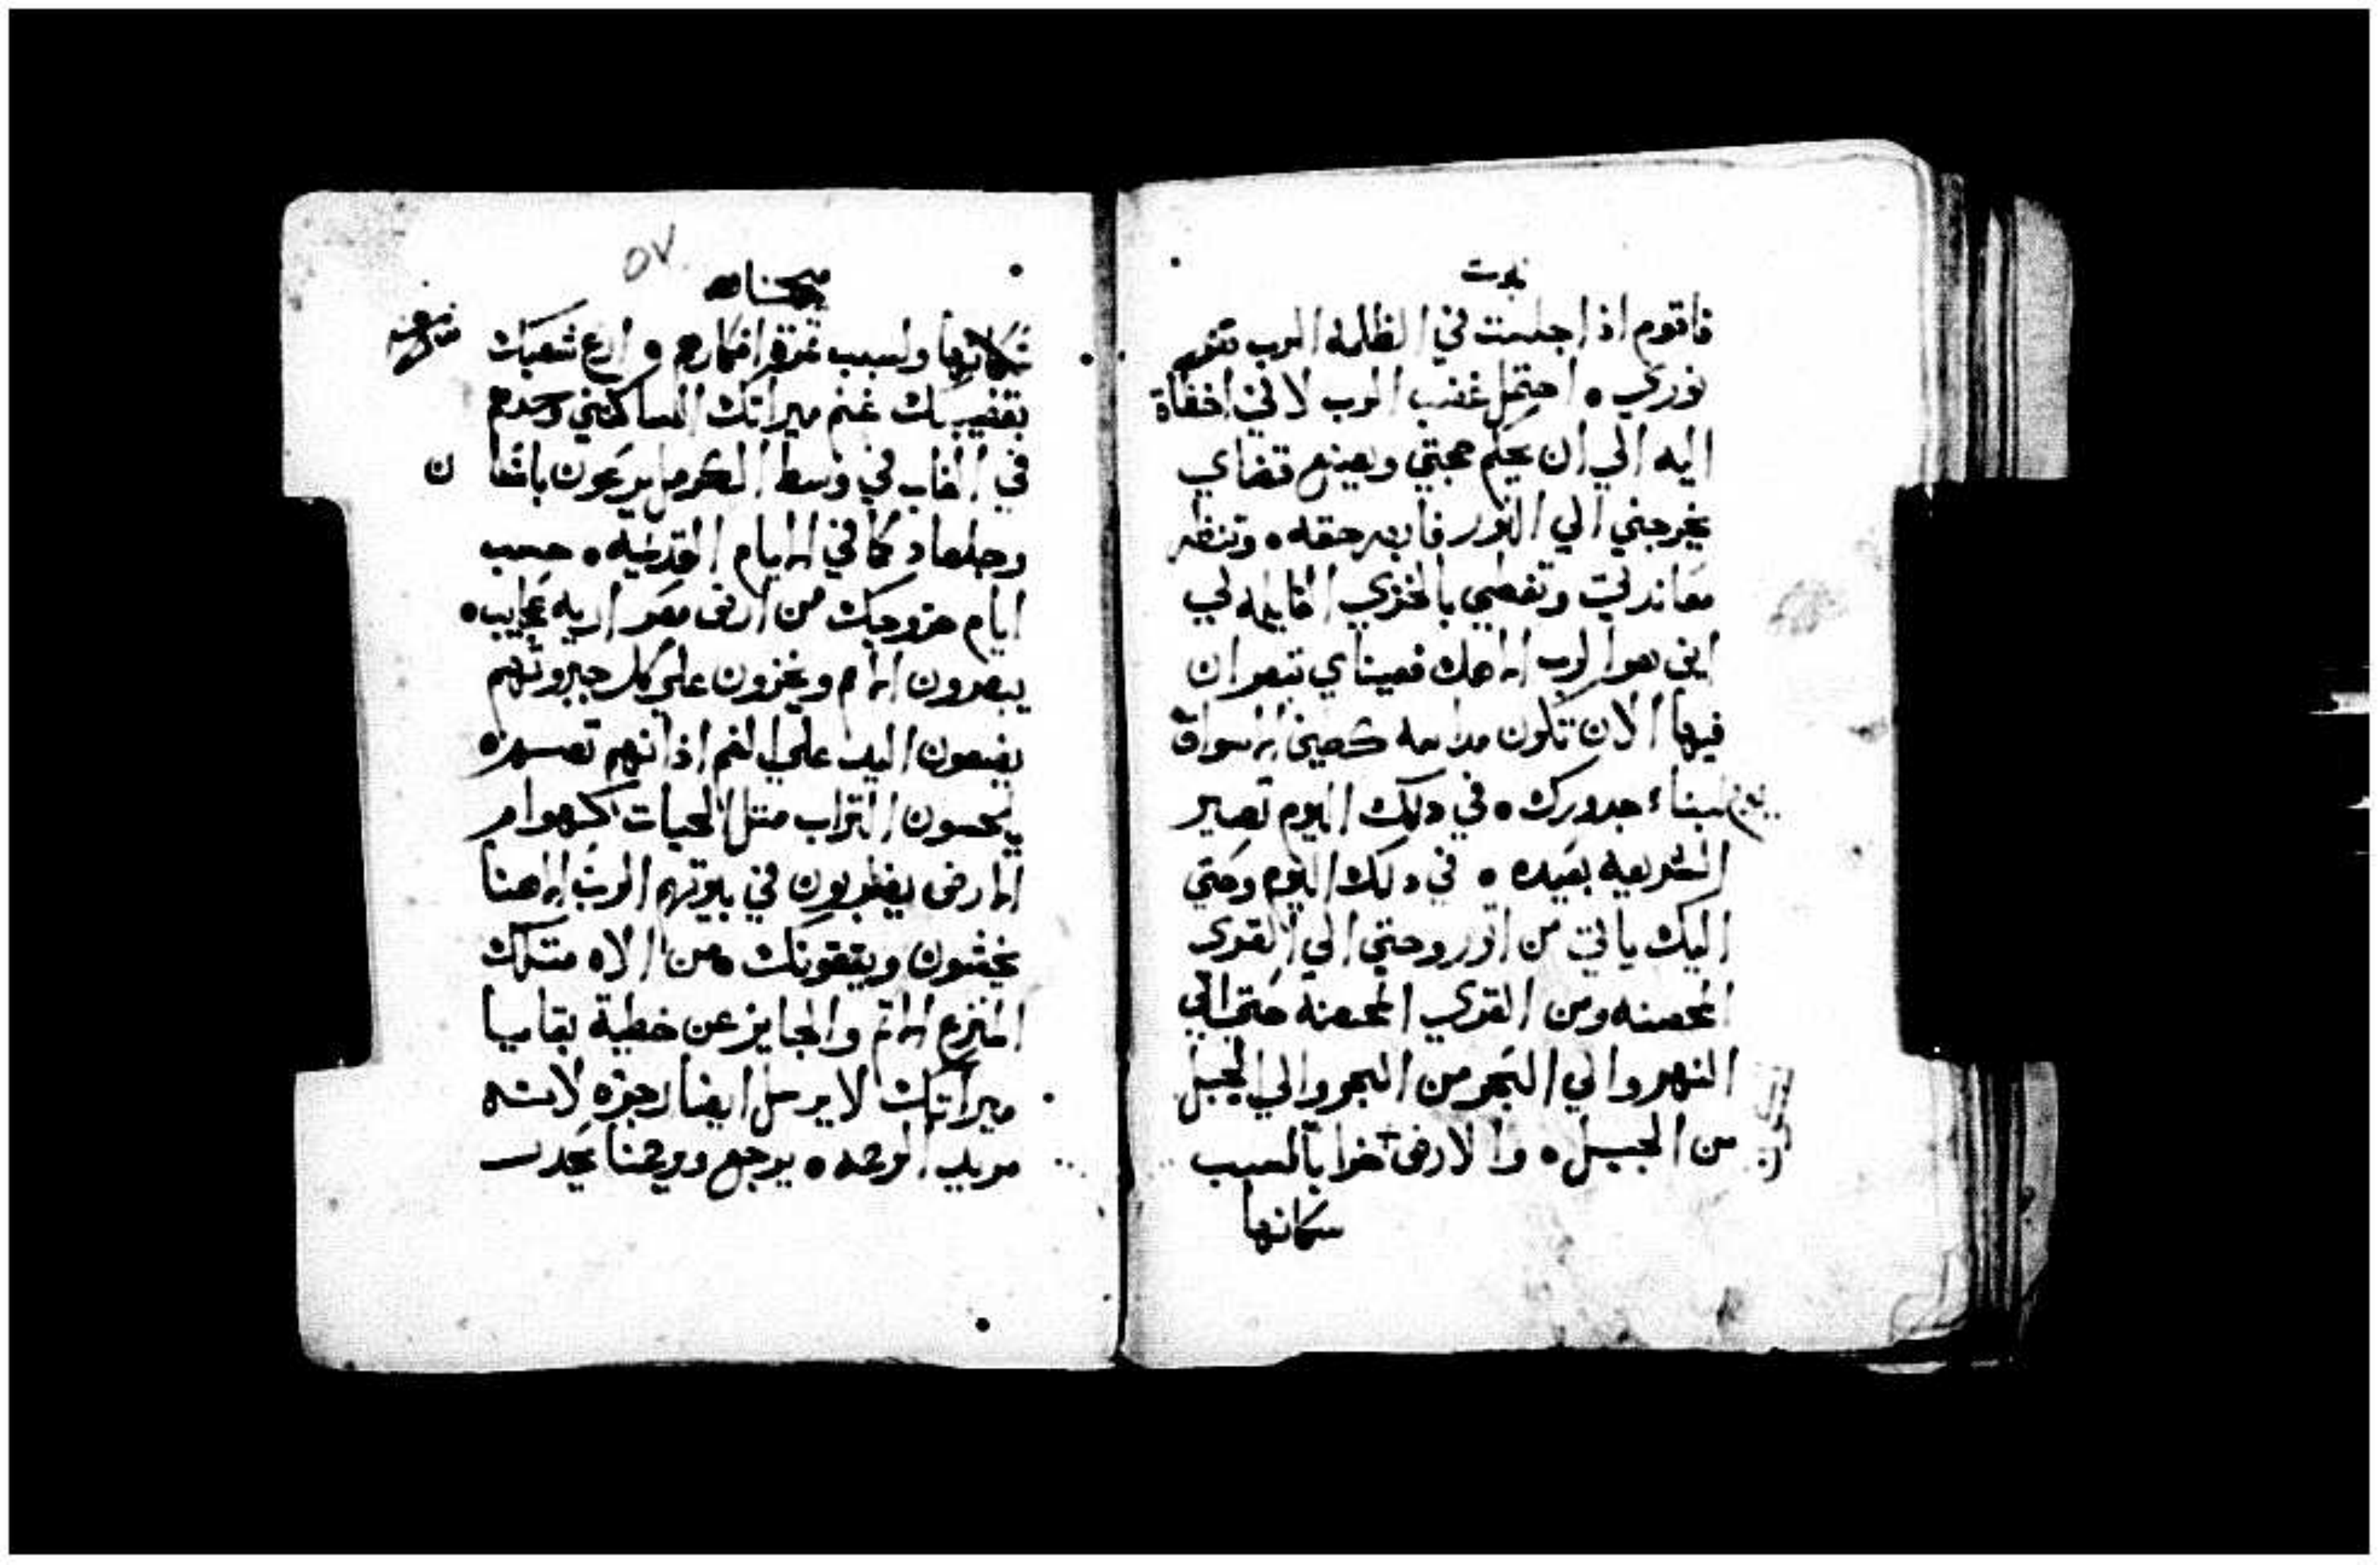 نبوت
فاقوم اذا جلست في الظلمه الرب
نوري • احتمل غضب الرب لاني اخطاة
اليه الي ان يحكم حجتي ويصنع قضاي
يخرجني الي النور فابصر حقه • وتنظر
معاندتي وتغطي بالخزي القايله لي
اين هو الرب الاهك فعيناي تبصران
فيها الان تكون مداسه كطين الاسواق
لبناء جدورك • في دلك اليوم تصير
الشريعه بعيده • في دلك اليوم وحتي
اليك ياتي من اتور وحتي الي القري
المحصنه ومن القري المحصنة حتي الي
النهر والي البحر من البحر والي الجبل
من الجبل • والارض خرابا لسبب
سكانها
٥٧
ميخا
سكانها ولسبب افكارهم • ارع شعبك
بقضيبك غنم ميراتك الساكنين وحدهم
في الغاب في وسط الكرمل يرعون
وجلعاد كما في الايام القديمه • حسب
ايام خروجك من ارض مصر اريه عجايب •
يبصرون الامم ويخزون علي كل جبروتهم
يضعون اليد علي الفم اذانهم
يلحسون التراب متل الحيات كهوام
الارض يضطربون في بيوتهم الرب الاهنا
يخشون ويتقونك • من الاه متلك
المنزع الاتم والجايز عن خطية بقايا
ميراتك لا يرسل ايضا رجزه لانه
مريد الرحمه • يرجع ويرحمنا